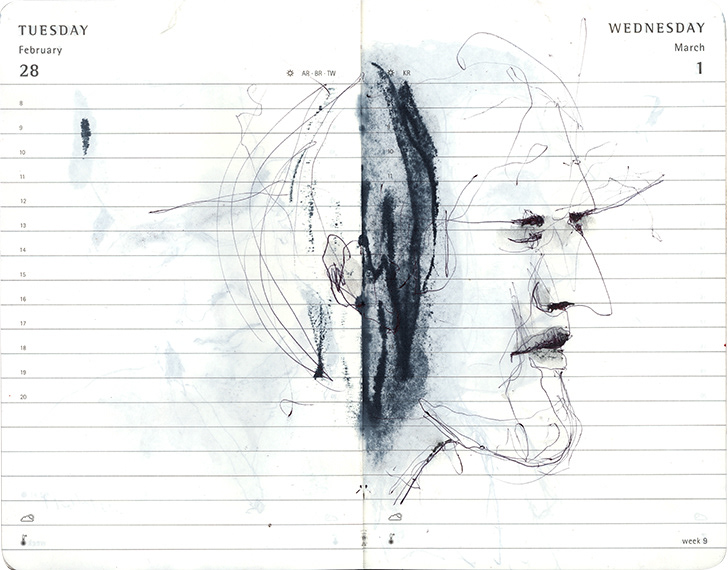 TUESDAY
February
28
AB - BR - TW
8
9
10
11
12
13
14
15
16
17
18
19
20
WEDNESDAY
March
1
KR
10
11
week 9